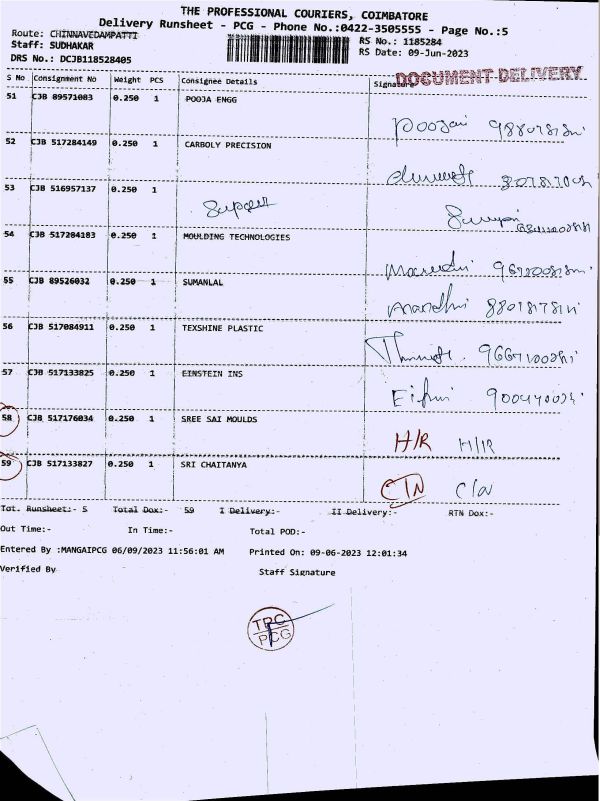 THE PROFESSIONAL COURIERS, COIMBATORE
Delivery Runsheet - PCG - Phone No.:0422-3505555 - Page No.:5
Route: CHINNAVEDAMPATTI
Staff: SUDHAKAR
RS No.: 1185284
DRS No.: DCJB118528405
RS Date: 09-Jun-2023
S No Consignment No Weight PCS Consignee Details Signature
DOCUMENT DELIVERY
51 CJB 89571083 0.250 1 POOJA ENGG
52 CJB 517284149 0.250 1 CARBOLY PRECISION
53 CJB 516957137 0.250 1
54 CJB 517284183 0.250 1 MOULDING TECHNOLOGIES
55 CJB 89526032 0.250 1 SUMANLAL
56 CJB 517084911 0.250 1 TEXSHINE PLASTIC
57 CJB 517133825 0.250 1 EINSTEIN INS
58 CJB 517176034 0.250 1 SREE SAI MOULDS H/R H/R
59 CJB 517133827 0.250 1 SRI CHAITANYA CTN
Tot. Runsheet:- 5 Total Dox:- 59 I Delivery:- II Delivery:- RTN Dox:-
Out Time:- In Time:- Total POD:-
Entered By :MANGAIPCG 06/09/2023 11:56:01 AM Printed On: 09-06-2023 12:01:34
Verified By Staff Signature
TPC
PCG